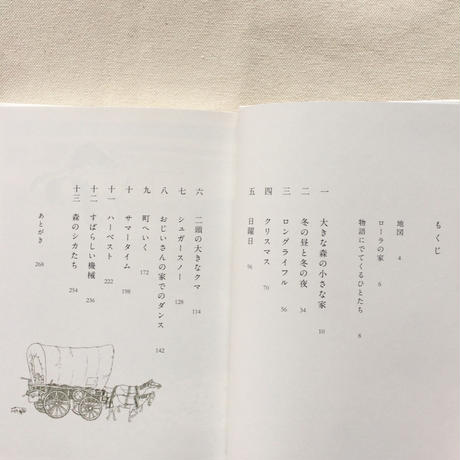 もくじ
地図 4
ローラの家 6
物語にでてくるひとたち 8
一 大きな森の小さな家 10
二 冬の昼と冬の夜 34
三 ロングライフル 56
四 クリスマス 70
五 日曜日 96
六 二頭の大きなクマ 114
七 シュガースノー 128
八 おじいさんの家でのダンス 142
九 町へいく 172
十 サマータイム 198
十一 ハーベスト 222
十二 すばらしい機械 236
十三 森のシカたち 254
あとがき 268